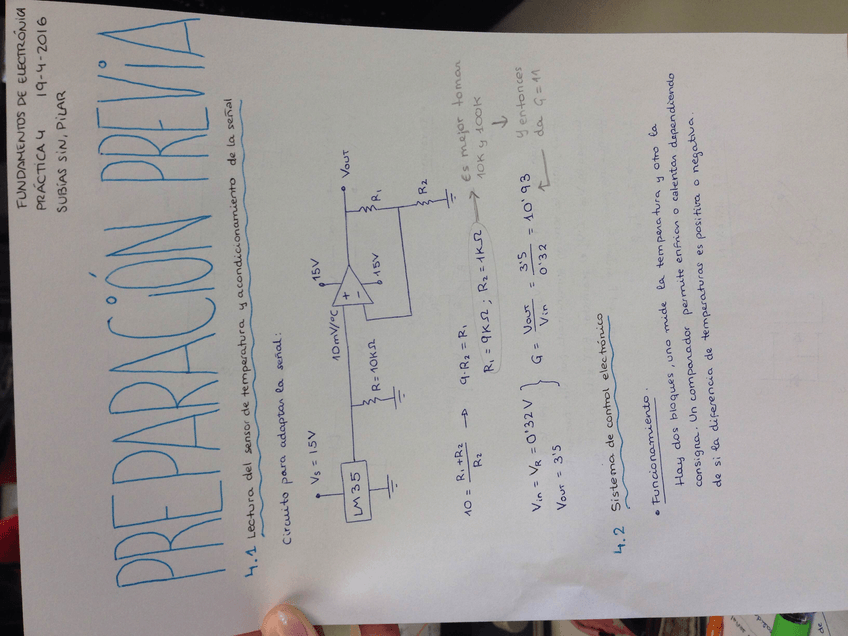 FUNDAMENTOS DE ELECTRÓNICA
PRÁCTICA 4 19-4-2016
SUBÍAS SIN, PILAR
PREPARACIÓN PREVIA
4.1 Lectura del sensor de temperatura y acondicionamiento de la señal
Circuito para adaptar la señal:
Vs = 15V
LM35
R=10KΩ
10mV/ºC
15V
+
-
15V
VOUT
R1
R2
10 = R1+R2 / R2 → 9·R2 = R1
R1 = 9KΩ ; R2 = 1KΩ → Es mejor tomar
10K y 100K
y entonces
da G=11
Vin = VR = 0'32V
Vout = 3'5
} G = Vout / Vin = 3'5 / 0'32 = 10'93
4.2 Sistema de control electrónico
• Funcionamiento.
Hay dos bloques, uno mide la temperatura y otro la
consigna. Un comparador permite enfriar o calentar dependiendo
de si la diferencia de temperaturas es positiva o negativa.